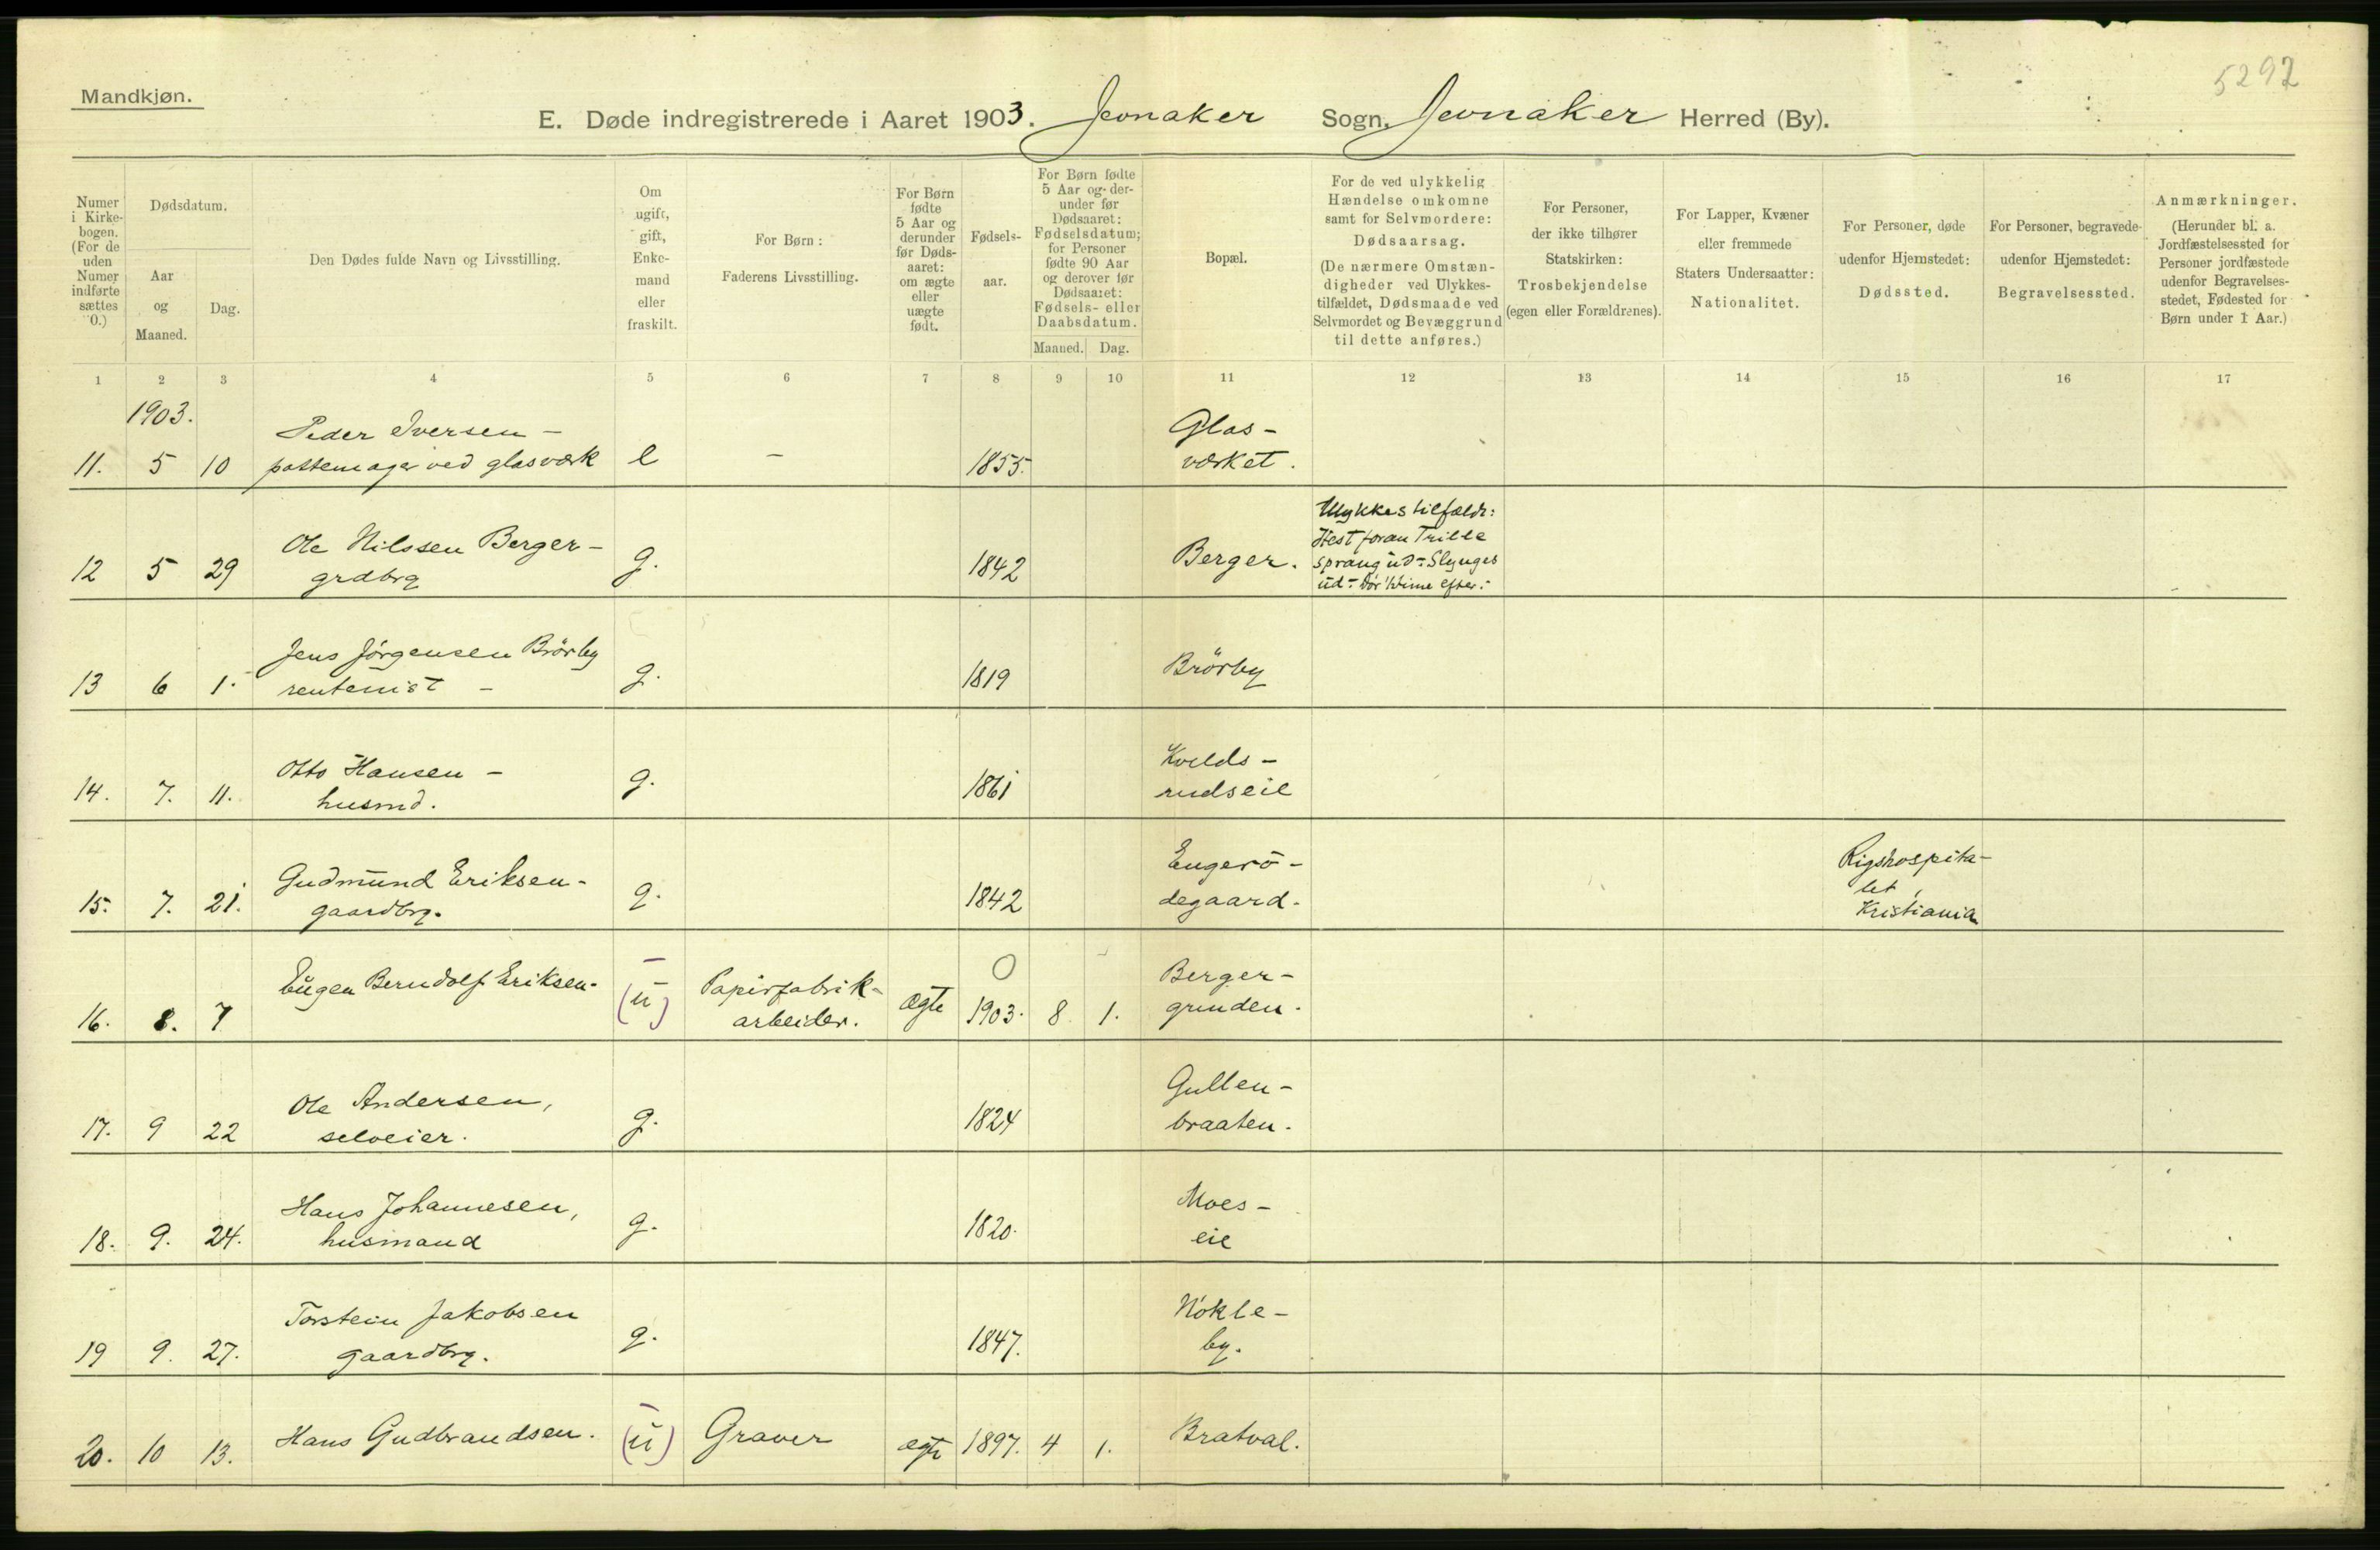 5292
Mandkjøn.
E. Døde indregistrerede i Aaret 1903. Jevnaker Sogn. Jevnaker Herred (By).
Numer i Kirke- bogen. (For de uden Numer indførte sættes 0.)
Dødsdatum.
Aar og Maaned.
Dag.
Den Dødes fulde Navn og Livsstilling.
Om ugift, gift, Enke- mand eller fraskilt.
For Børn: Faderens Livsstilling.
For Børn fødte 5 Aar og derunder før Døds- aaret: om ægte eller uægte født.
Fødsels- aar.
For Børn fødte 5 Aar og der- under før Dødsaaret: Fødselsdatum; for Personer fødte 90 Aar og derover før Dødsaaret: Fødsels- eller Daabsdatum.
Maaned. Dag.
Bopæl.
For de ved ulykkelig Hændelse omkomne samt for Selvmordere: Dødsaarsag. (De nærmere Omstæn- digheder ved Ulykkes- tilfældet, Dødsmaade ved Selvmordet og Bevæggrund til dette anføres.)
For Personer, der ikke tilhører Statskirken: Trosbekjendelse (egen eller Forældrenes).
For Lapper, Kvæner eller fremmede Staters Undersaatter: Nationalitet.
For Personer, døde udenfor Hjemstedet: Dødssted.
For Personer, begravede udenfor Hjemstedet: Begravelsessted.
Anmærkninger. (Herunder bl. a. Jordfæstelsessted for Personer jordfæstede udenfor Begravelses- stedet, Fødested for Børn under 1 Aar.)
1 2 3 4 5 6 7 8 9 10 11 12 13 14 15 16 17
1903.
Peder Iversen - Glas-
11. 5 10 pottemager ved glasværk e - 1855. værket.
Ulykkestilfælde:
Hest foran Trille
sprang ud - Slynges
ud - Dør efter.
Ole Nilssen Berger-
12 5 29 grdbrg g. 1842 Berger.
Jens Jørgensen Brörby
13 6 1. rentenist - g. 1819 Brörby
Otto Hansen - Kvelds-
14. 7. 11. husmd. g. 1861 rudseie
Gudmund Eriksen - Engerö- Rigshospita-
15. 7. 21. gaardbrg. g. 1842 degaard. let,
Kristiania
Eugen Berndolf Eriksen. Papirfabrik- O Berger-
16. 8. 7 (u) arbeider. ægte 1903. 8 1. grinden.
Ole Andersen, Gullen-
17. 9 22 selveier. g. 1824 braaten.
Hans Johannesen, Moes-
18. 9. 24. husmand g. 1820. eie
Torstein Jakobsen Nökle-
19 9. 27. gaardbrg. g. 1847. by.
20. 10 13. Hans Gudbrandsen. (u) Graver ægte 1897. 4 1. Bratval.